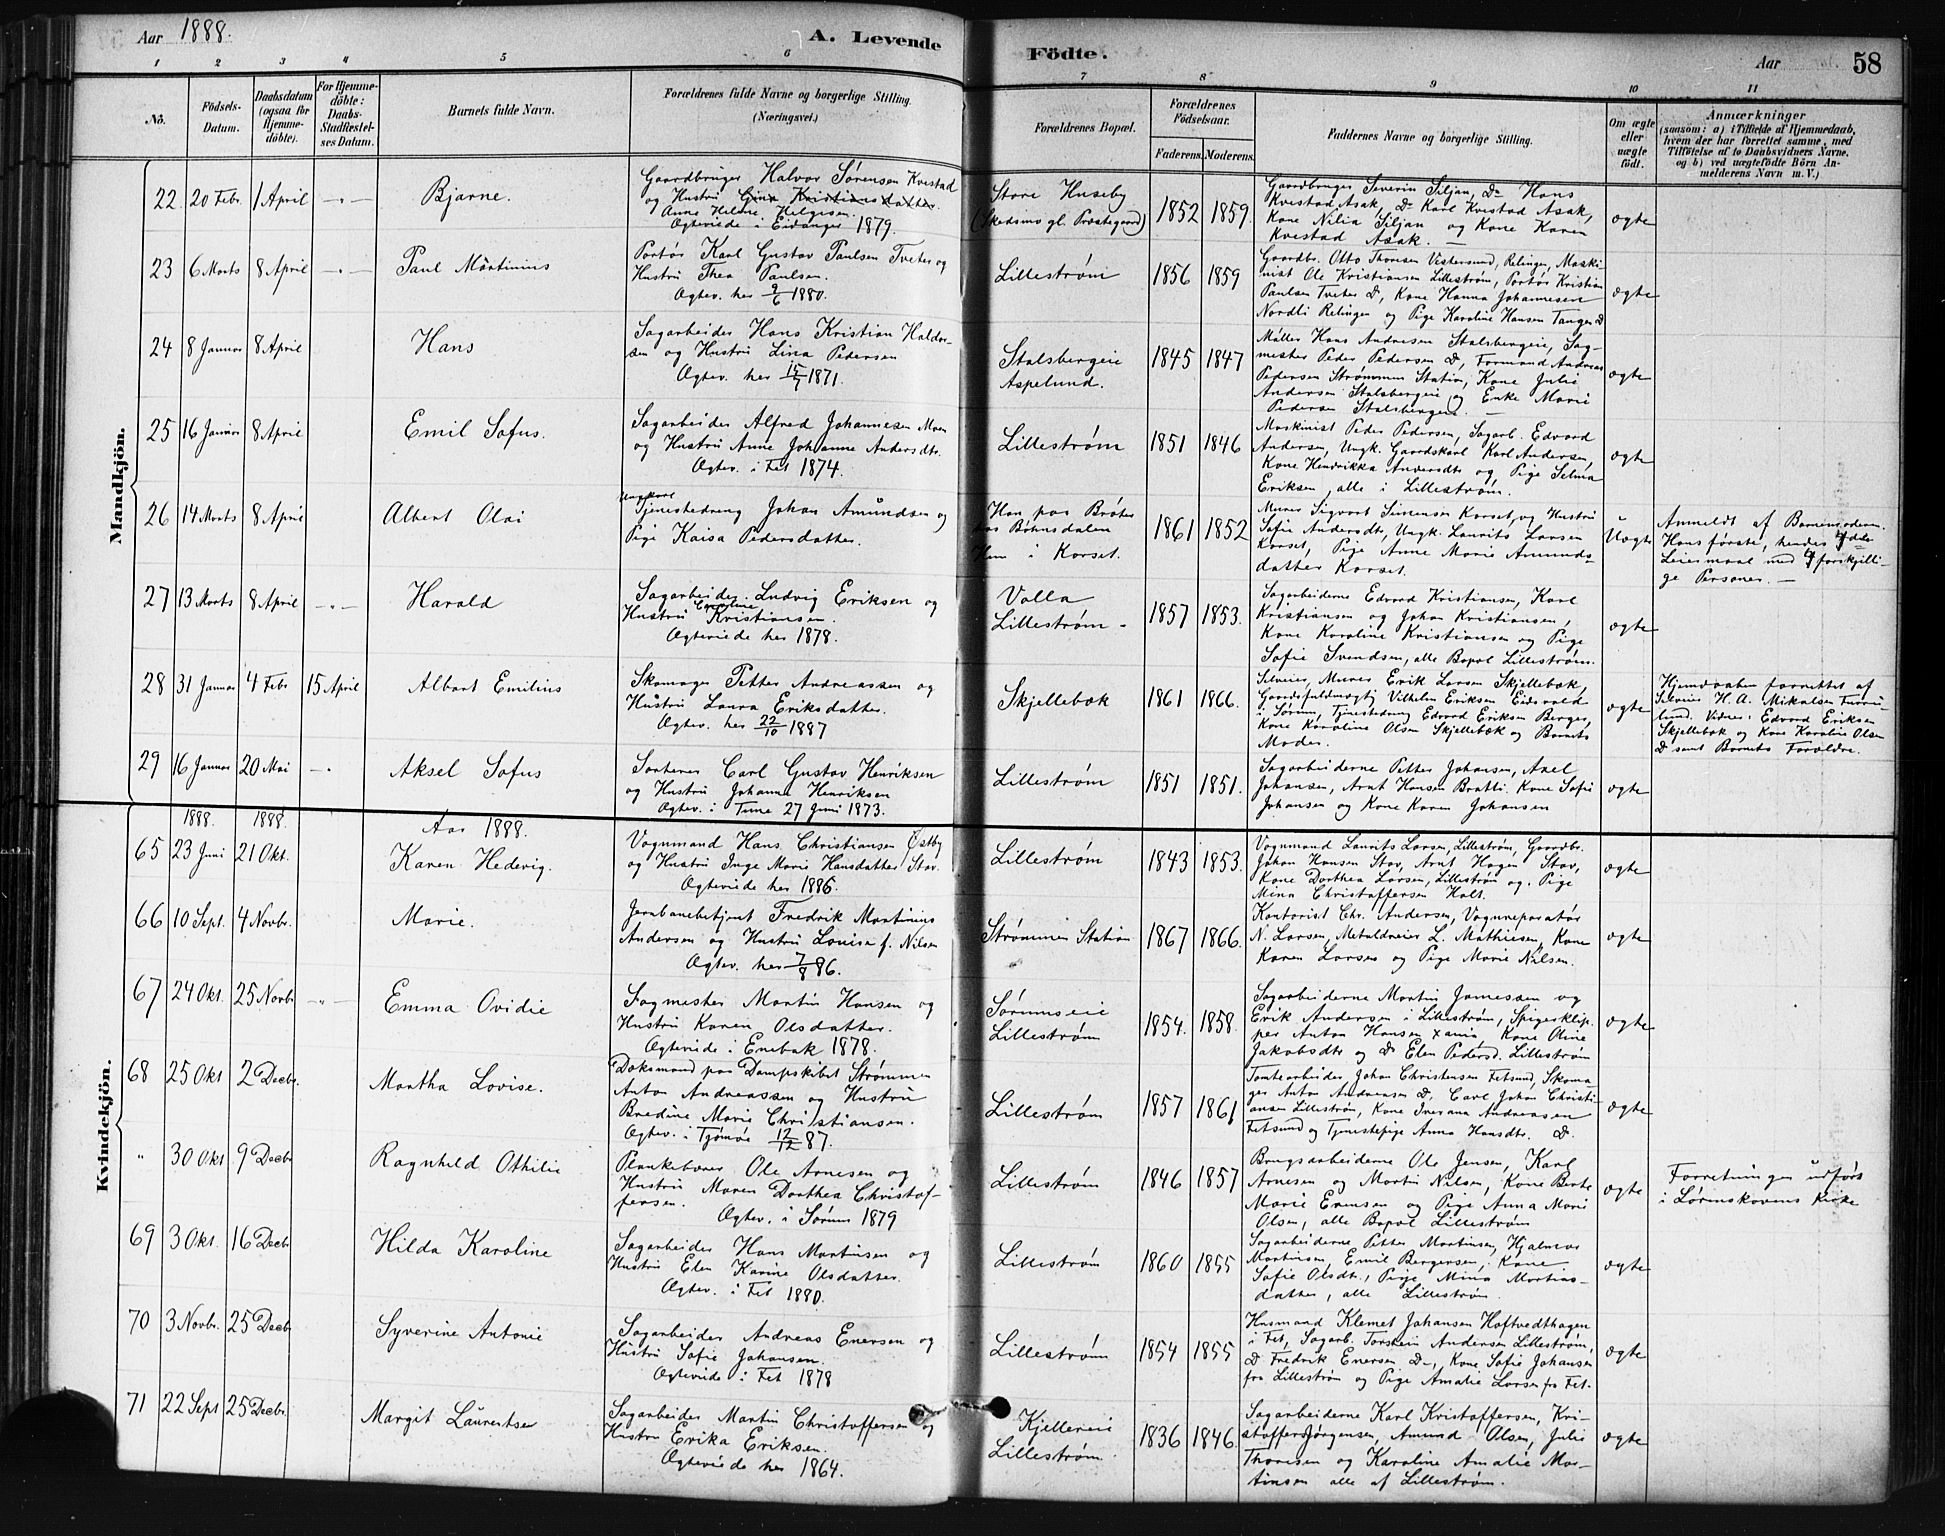 Aar 1888.
A. Levende
Födte.
Aar
58
1 2 3 4 5 6 7 8 9 10 11
No.
Födsels-
Datum.
Daabsdatum
(ogsaa för
Hjemme-
döbte).
For Hjemme-
döbte:
Daabs-
Stadfæstel-
ses Datum.
Barnets fulde Navn.
Forældrenes fulde Navne og borgerlige Stilling.
(Næringsvei.)
Forældrenes Bopæl.
Forældrenes
Födselsaar.
Faderens. Moderens.
Faddernes Navne og borgerlige Stilling.
Om ægte
eller
uægte
født.
Anmærkninger
(saasom: a) i Tilfælde af Hjemmedaab,
hvem der har forrettet samme, med
Tilföielse af to Daabsvidners Navne.
og b) ved uægtefödte Börn An-
melderens Navn m. V.)
Mandkjön.
22 20 Febr. 1 April -„- Bjarne.
Gaardbruger Halvor Sørensen Kvestad
og Hustru Gina Kristiansdatter.
Anne Helene Helgesen.
Ægteviede i Eidanger 1879.
Store Huseby
(Skedsmo gl. Præstegaard)
1852 1859.
Gaardbruger Severin Siljan, Do Hans
Kvestad Asak, Do Karl Kvestad Asak,
Kone Nilia Siljan og Kone Karen
Kvestad Asak. —
ægte
23 6 Marts 8 April -„- Paul Martinius
Portør Karl Gustav Paulsen Tveter og
Hustru Thea Paulsen.
Ægtev. her 9/6 1880.
Lillestrøm
1856 1859
Gaardbr. Otto Thoresen Vestersund, Relingen, Maski-
nist Ole Kristiansen Lillestrøm, Portør Kristian
Paulsen Tveter D, Kone Hanna Johannesen
Nordli Relingen og Pige Karoline Hansen Tangen D
ægte
24 8 Januar 8 April Hans
Sagarbeider Hans Kristian Haldor-
sen og Hustru Lina Pedersen
Ægtev. her 15/7 1871.
Stalsbergeie
Aspelund.
1845 1847
Møller Hans Andreasen Stalsbergeie, Sag-
mester Peder Pedersen D, Formand Andreas
Pedersen Strømmen Station, Kone Julie
Andersen Stalsbergeie og Enke Marie
Pedersen Stalsbergeie. —
ægte
25 16 Januar 8 April Emil Sofus.
Sagarbeider Alfred Johannesen Moen
og Hustru Anne Johanne Andersdtr.
Ægtev. i Fet 1874.
Lillestrøm
1851 1846
Maskinist Peder Pedersen, Sagarb. Edvard
Andersen, Ungk. Gaardskarl Karl Andersen,
Kone Hendrikka Andersdtr og Pige Selma
Eriksen, alle i Lillestrøm.
ægte
26 14 Marts 8 April Albert Olai
Ungkarl
Tjenestedreng Johan Amundsen og
Pige Kaisa Pedersdatter.
Han paa Bråtes
Bøhnsdalen
Hun i Korset.
1861 1852
Murer Sigvart Simensen Korset, og Hustru
Sofie Andersdtr, Ungk. Laurits Larsen
Korset, Pige Anne Marie Amunds-
datter Korset.
Uægte
Anmeldt af Barnemoderen.
Hans første, hendes 4de
Leiermaal med 4 forskjelli-
ge Personer. —
27 13 Marts 8 April -„- Harald
Sagarbeider Ludvig Eriksen og
Hustru Caroline Kristiansen.
Ægteviede her 1878.
Volla
Lillestrøm -
1857 1853.
Sagarbeiderne Edvard Kristiansen, Karl
Kristiansen og Johan Kristiansen,
Kone Karoline Kristiansen og Pige
Sofie Svendsen, alle Bopæl Lillestrøm.
ægte
28 31 Januar 4 Febr 15 April Albert Emilius
Skomager Petter Andreassen og
Hustru Laura Eriksdatter.
Ægtev. her 22/10 1887
Skjellebæk
1861 1866.
Selveier, Murer Erik Larsen Skjellebæk,
Gaardsfuldmægtig Vilhelm Eriksen Eidsvold
i Sørum, Tjenestedreng Edvard Eriksen Berger,
Kone Karoline Olsen Skjellebæk og Barnets
Moder.
ægte
Hjemdaaben forrettet af
Selveier H. A. Mikalsen Furu-
lund. Vidner: Edvard Eriksen
Skjellebæk og Kone Karoline Olsen
D samt Barnets Forældre.
29 16 Januar 20 Mai -„ Aksel Sofus
Sorterer Carl Gustav Henriksen
og Hustru Johanna Henriksen
Ægtev. i Tune 27 Juni 1873.
Lillestrøm
1851 1851.
Sagarbeiderne Petter Johansen, Axel
Johansen, Arnt Hansen Bratli. Kone Sofie
Johansen og Kone Karen Johansen
ægte
Kvindekjön.
1888. 1888. Aar 1888.
65 23 Juni 21 Okt. Karen Hedevig.
Vognmand Hans Christiansen Østby
og Hustru Inge Marie Hansdatter Stav.
Ægteviede her 1886.
Lillestrøm
1843 1853.
Vognmand Laurits Larsen, Lillestrøm, Gaardbr.
Johan Hansen Stav, Arnt Hagen Stav,
Kone Dorthea Larsen, Lillestrøm og Pige
Mina Christoffersen Holt.
ægte
66 10 Sept. 4 Novbr. Marie.
Jernbanebetjent Fredrik Martinius
Andersen og Hustru Louise f. Nilsen
Ægtev. her 7/8 86.
Strømmen Station
1867 1866.
Kontorist Chr. Andersen, Vognreparatør
N. Larsen, Metaldreier L. Mathiesen, Kone
Karen Larsen og Pige Marie Nilsen.
ægte
67 24 Okt. 25 Novbr -„- Emma Ovidie
Sagmester Martin Hansen og
Hustru Karen Olsdatter.
Ægteviede i Enebak 1878.
Sørumseie
Lillestrøm
1854. 1858.
Sagarbeiderne Martin Jamessen og
Erik Andersen i Lillestrøm, Spigerklip-
per Anton Hansen Kone Oline
Jakobsdtr og D Elen Pedersd. Lillestrøm
ægte
68 25 Okt 2 Decbr. Martha Lovise.
Dæksmand paa Dampskibet Strømmen
Anton Andreassen og Hustru
Bredine Marie Christiansen.
Ægtev. i Tjømø 12/12 87.
Lillestrøm
1857 1861
Tomtearbeider Johan Christensen Fetsund, Skoma-
ger Anton Andreasen D, Carl Johan Christi-
ansen Lillestrøm, Kone Andreasen
Fetsund og Tjenestepige Anna Hansdtr. D.
ægte
„ 30 Okt 9 Decbr Ragnhild Othilie
Plankebærer Ole Arnesen og
Hustru Maren Dorthea Christof-
fersen. Ægtev. i Sørum 1879
Lillestrøm
1846 1857
Brugsarbeiderne Ole Jensen, Karl
Arnesen og Martin Nilsen, Kone Berte
Marie Evensen og Pige Anna Marie
Olsen, alle Bopæl Lillestrøm
ægte
Forretningen udført
i Lørenskovens Kirke
69 3 Okt. 16 Decbr Hilda Karoline
Sagarbeider Hans Martinsen og
Hustru Elen Karine Olsdatter.
Ægtev. i Fet 1880.
Lillestrøm
1860 1855
Sagarbeiderne Petter Martinsen, Hjalmar
Martinsen, Emil Bergersen, Kone
Sofie Olsdt., Pige Mina Martins-
datter, alle Lillestrøm.
ægte
70 3 Novbr. 25 Decbr Syverine Antonie
Sagarbeider Andreas Enersen og
Hustru Sofie Johansen.
Ægteviede i Fet 1878
Lillestrøm
1854 1855
Husmand Klemet Johansen Hoftvedthagen
i Fet, Sagarb. Torstein Andersen Lillestrøm,
D Fredrik Enersen D-, Kone Sofie Johansen
fra Lillestrøm og Pige Amalie Larsen fra Fet.
ægte
71 22 Sept 25 Decbr. Margit Laurentse
Sagarbeider Martin Christoffersen og
Hustru Erika Eriksen.
Ægteviede her 1864.
Kjellereie
Lillestrøm
1836 1846.
Sagarbeiderne Karl Kristoffersen, Kri-
stoffer Jørgensen, Amund Olsen, Julie
Thoresen og Karoline Amalie Mar-
tinsen alle af Lillestrøm.
ægte